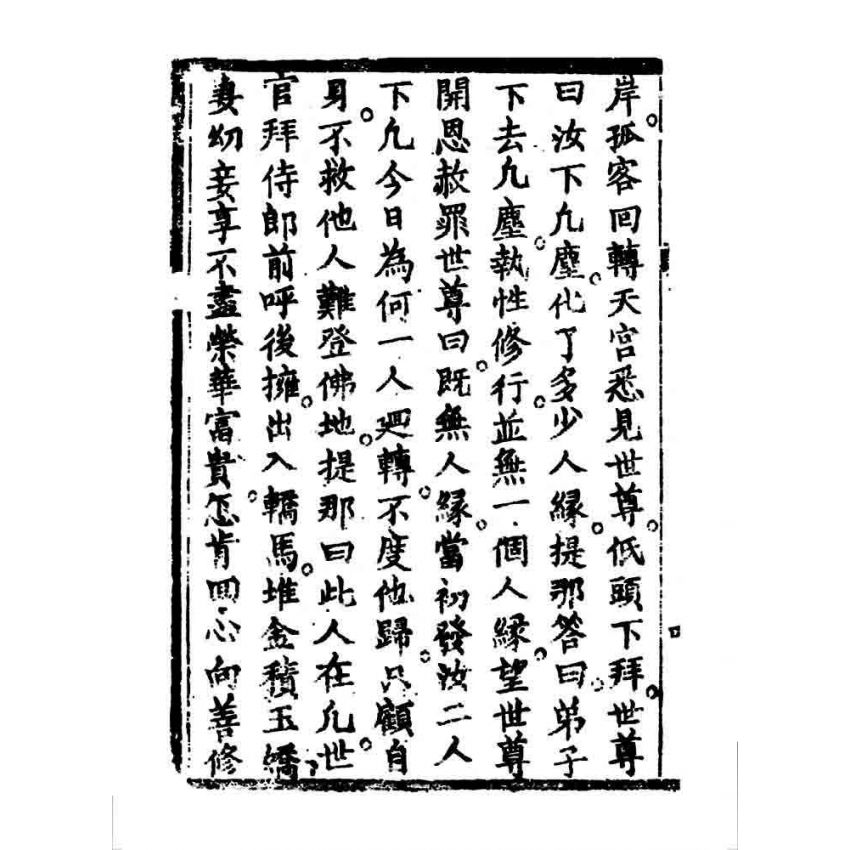 岸孤客回轉天宮悉見世尊低頭下拜世尊
曰汝下凢塵化了多少人縁提那答曰弟子
下去凢塵執性修行並無一個人縁望世尊
開恩赦罪世尊曰既無人縁當初發汝二人
下凢今日為何一人廻轉不度他歸只顧自
身不救他人難登佛地提那曰此人在凢世
官拜侍郎前呼後擁出入轎馬堆金積玉嬌
妻幼妾享不盡榮華富貴怎肯回心向善修